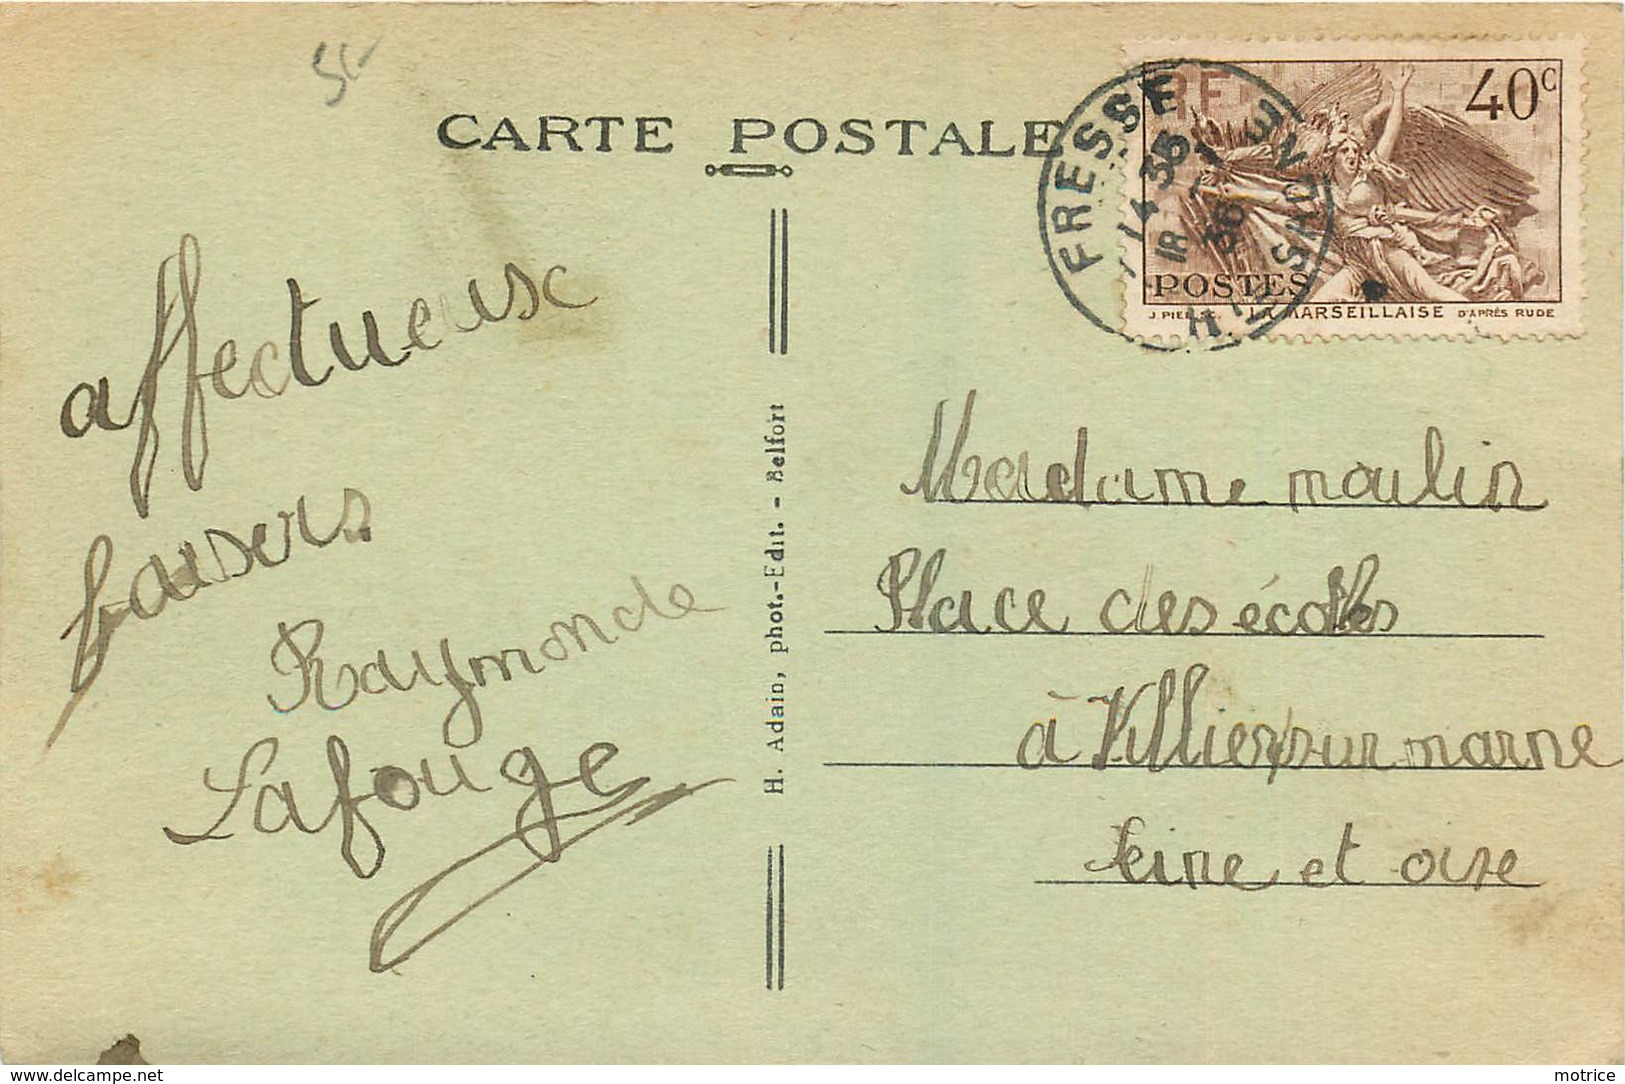 CARTE POSTALE
RF
40c
POSTES
J. PIEL SC. LA MARSEILLAISE D'APRÈS RUDE
FRESSE
HTE SAONE
14 35
36
affectueuse
baisers
Raymonde
Lafouge
H. Adam, phot.-Edit. - Belfort
Madame moulin
Place des écoles
à Villiers sur marne
Seine et oise
www.delcampe.net
matrice